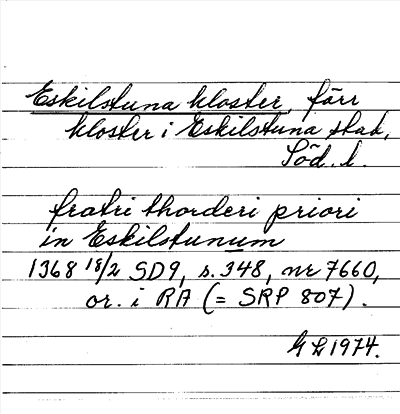 Eskilstuna kloster, förr
kloster i Eskilstuna stad,
Söd. l.
fratri thorderi priori
in Eskilstunum
1368 18/2 SD9, s. 348, nr 7660,
or. i RA (= SRP 807).
G L 1974.